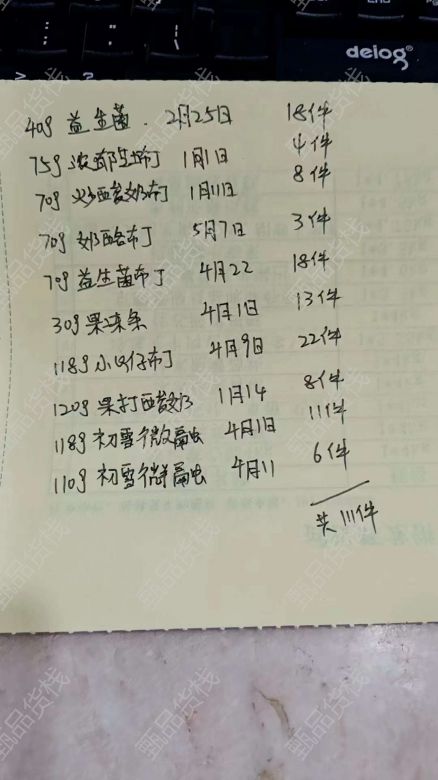 delog
40g 益生菌. 2月25日 18件
75g 浓郁生布丁 1月1日 4件
70g 炒酸奶布 1月11日 8件
70g 奶酪布丁 5月7日 3件
70g 益生菌布丁 4月22 18件
30g 果冻条 4月1日 13件
118g 小仔布丁 4月9日 22件
120g 果打酸奶 1月14 8件
118g 初雪微融 4月1日 11件
110g 初雪微融 4月11 6件
共111件
甄品货栈